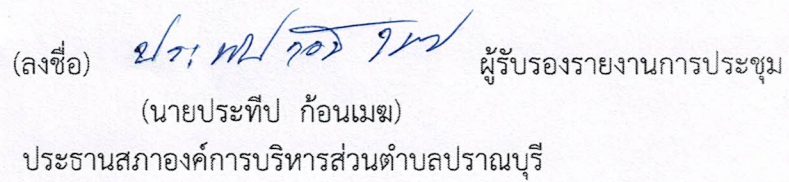 (ลงชื่อ) ประทีป ก้อนเมฆ ผู้รับรองรายงานการประชุม
(นายประทีป ก้อนเมฆ)
ประธานสภาองค์การบริหารส่วนตำบลปราณบุรี